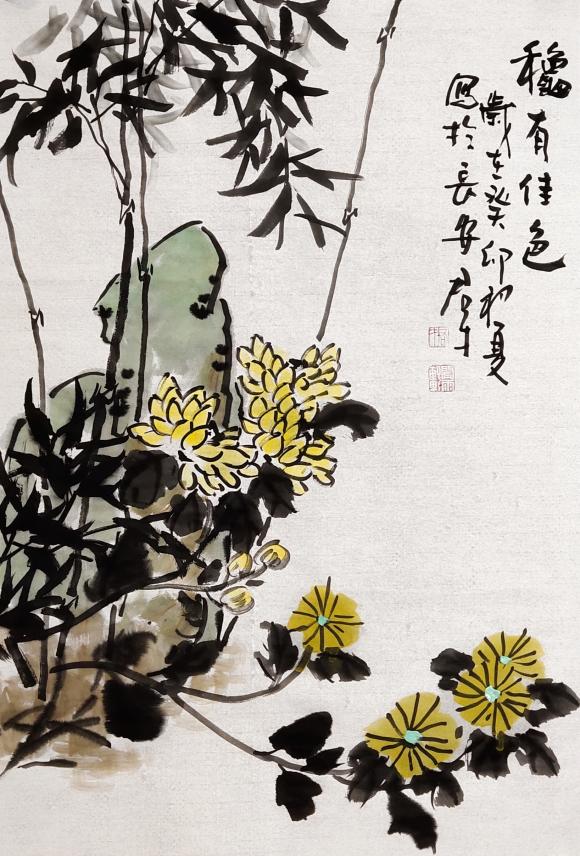 穐有佳色
歲在癸卯初夏
寫於長安